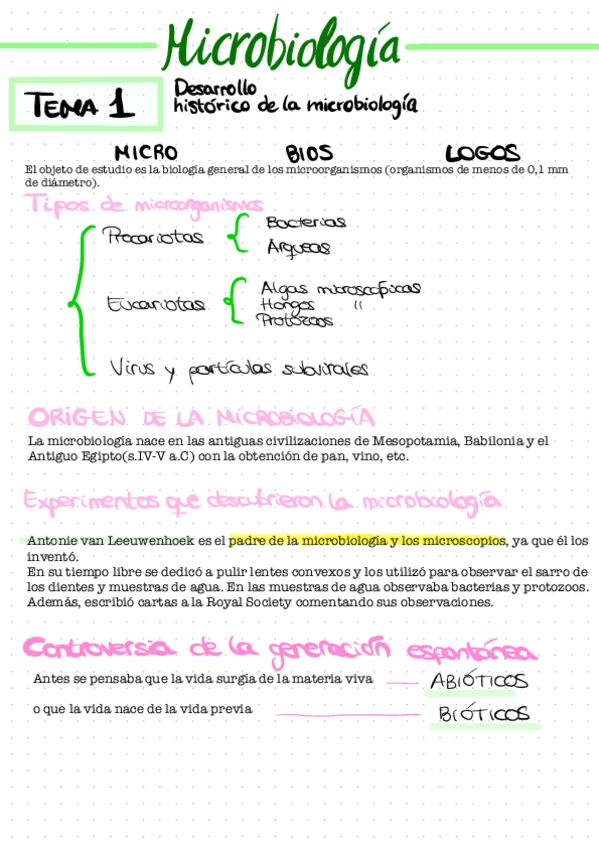 Microbiología
TEMA 1
Desarrollo
histórico de la microbiología
MICRO BIOS LOGOS
El objeto de estudio es la biología general de los microorganismos (organismos de menos de 0,1 mm
de diámetro).
Tipos de microorganismos
Procariotas
Bacterias
Arqueas
Eucariotas
Algas microscópicas
Hongos "
Protozoos
Virus y partículas subvirales
ORIGEN DE LA MICROBIOLOGÍA
La microbiología nace en las antiguas civilizaciones de Mesopotamia, Babilonia y el
Antiguo Egipto(s.IV-V a.C) con la obtención de pan, vino, etc.
Experimentos que descubrieron la microbiología
Antonie van Leeuwenhoek es el padre de la microbiología y los microscopios, ya que él los
inventó.
En su tiempo libre se dedicó a pulir lentes convexos y los utilizó para observar el sarro de
los dientes y muestras de agua. En las muestras de agua observaba bacterias y protozoos.
Además, escribió cartas a la Royal Society comentando sus observaciones.
Controversia de la generación espontánea
Antes se pensaba que la vida surgía de la materia viva ABIÓTICOS
o que la vida nace de la vida previa BIÓTICOS